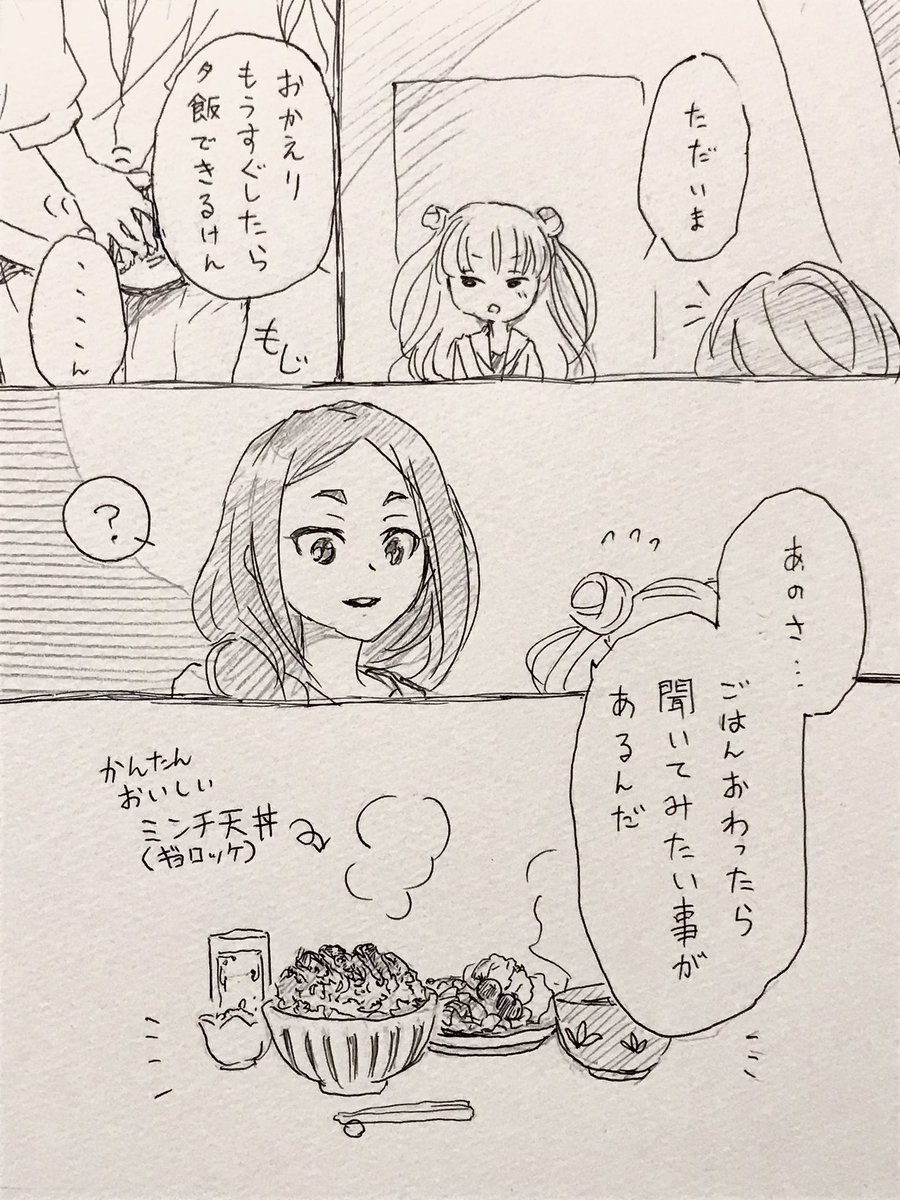 ただいま
おかえり
もうすぐしたら
夕飯できるけん
、、、、ん
もじ
?
あのさ…
ごはんおわったら
聞いてみたい事が
あるんだ
かんたん
おいしい
ミンチ天丼
(ギョロッケ)